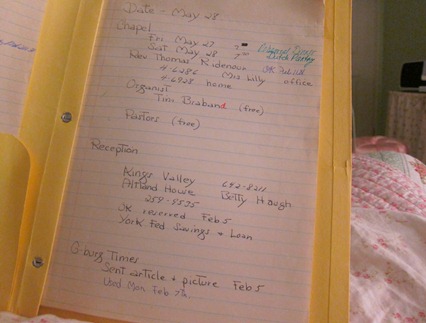 Date - May 28
Chapel
Fri May 27 7:00
Sat May 28 2:00
Rev Thomas Ridenour
4-6286 Mrs Lilly office
4-6928 home
Organist
Tim Braband (free)
Pastors (free)
Reception
Kings Valley 642-8211
Altland House Betty Hough
259-9535
OK reserved Feb 5
York Fed Savings + Loan
G-burg Times
Sent article + picture Feb 5
Used Mon Feb 7th